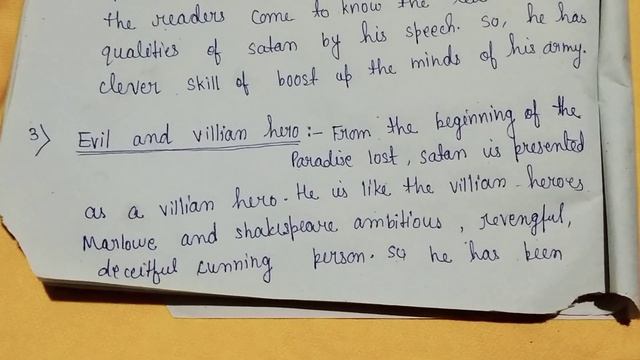 the readers come to know the
qualities of satan by his speech. So, he has
clever skill of boost up the minds of his army.
3) Evil and villian hero :- From the beginning of the
Paradise lost, satan is presented
as a villian hero. He is like the villian heroes
Marlowe and shakespeare ambitious, revengful,
deceitful cunning person. so he has been